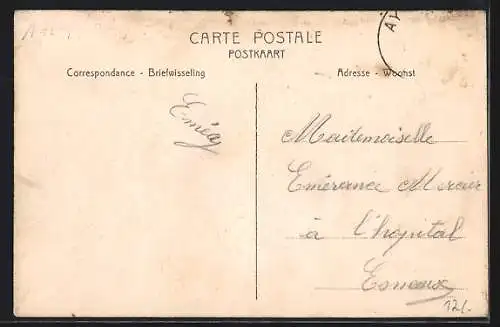 CARTE POSTALE
POSTKAART
Correspondance - Briefwisseling
Adresse - Woonst
Mademoiselle
Emérence Mercier
à l'hopital
Esneux
12/-